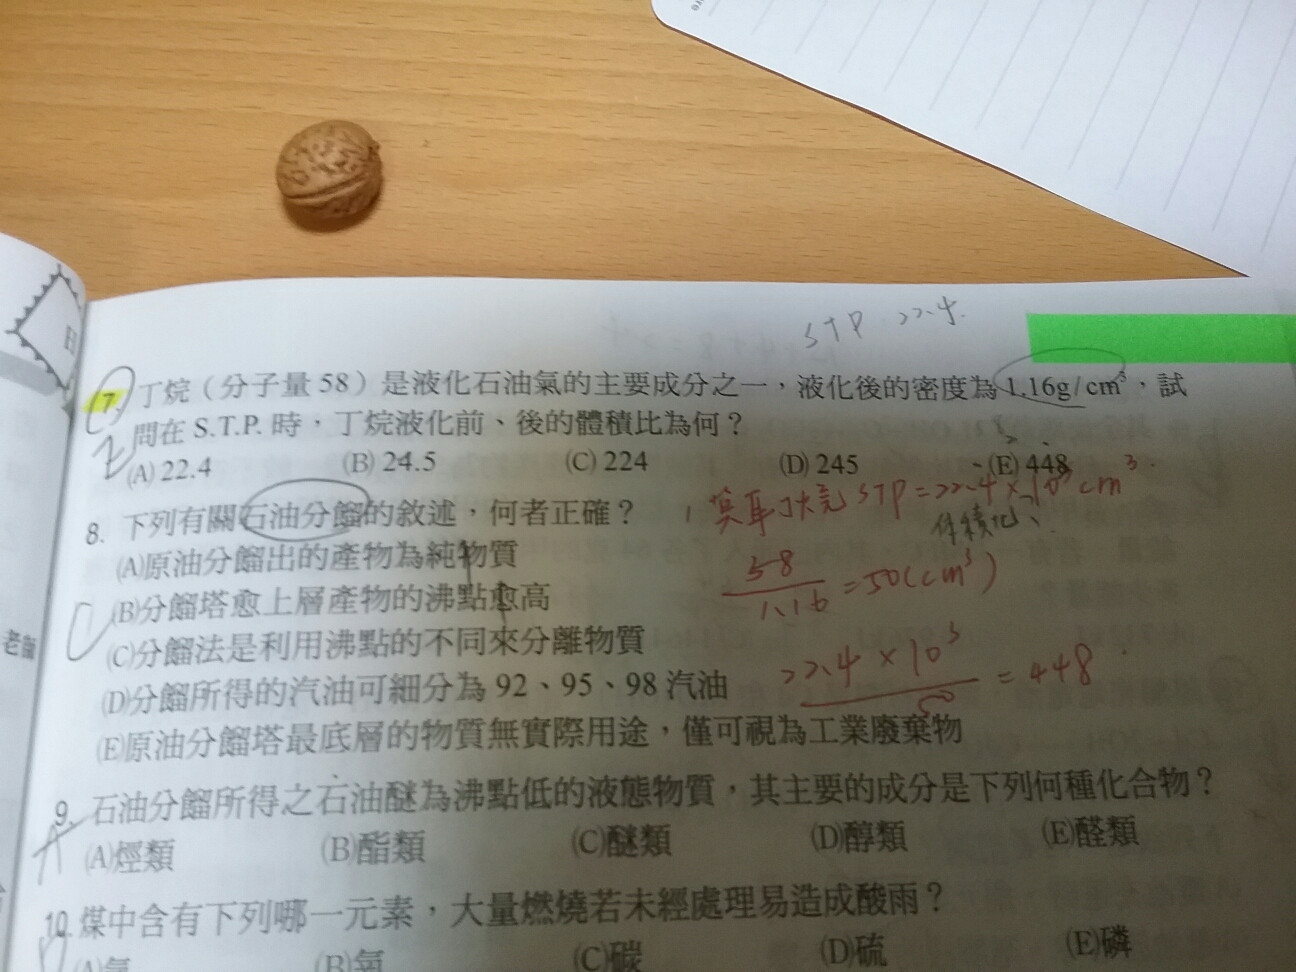 STP 22.4.
日
7. 丁烷（分子量 58）是液化石油氣的主要成分之一，液化後的密度為 1.16g/cm³，試
問在 S.T.P. 時，丁烷液化前、後的體積比為何？
(A) 22.4 (B) 24.5 (C) 224 (D) 245 (E) 448
莫耳狀態 STP = 22.4 × 10³ cm³.
體積比
8. 下列有關石油分餾的敘述，何者正確？
(A)原油分餾出的產物為純物質
58/1.16 = 50(cm³)
(B)分餾塔愈上層產物的沸點愈高
(C)分餾法是利用沸點的不同來分離物質
22.4 × 10³/50 = 448
(D)分餾所得的汽油可細分為 92、95、98 汽油
(E)原油分餾塔最底層的物質無實際用途，僅可視為工業廢棄物
老師
9. 石油分餾所得之石油醚為沸點低的液態物質，其主要的成分是下列何種化合物？
A
(A)烴類 (B)酯類 (C)醚類 (D)醇類 (E)醛類
10. 煤中含有下列哪一元素，大量燃燒若未經處理易造成酸雨？
(A)氫 (B)氧 (C)碳 (D)硫 (E)磷